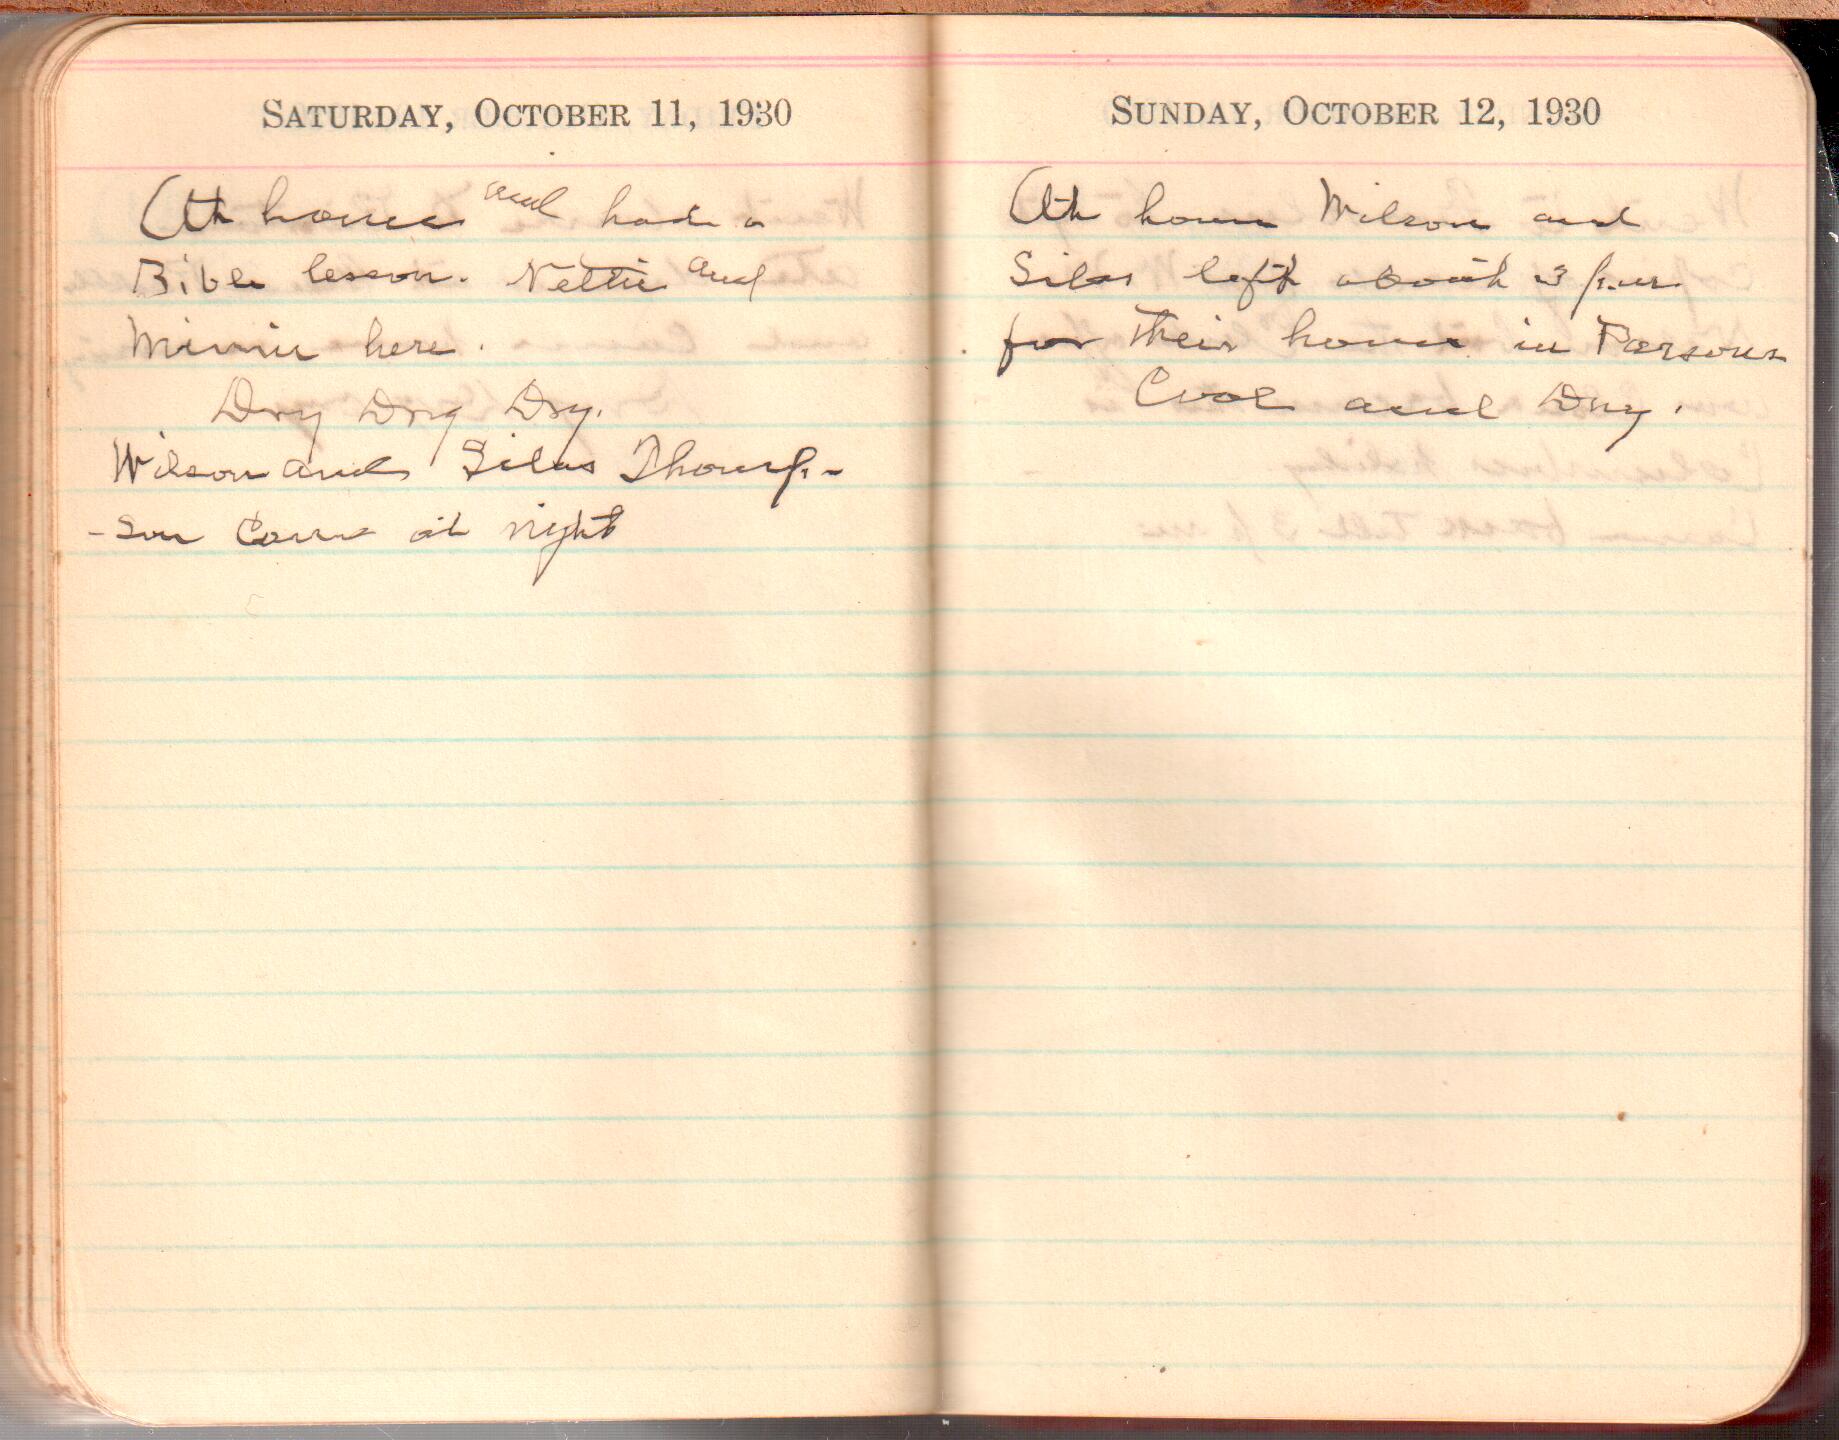 SATURDAY, OCTOBER 11, 1930
At home and had a
Bible lesson. Nettie and
Minnie here.
Dry Dry Dry.
Wilson and Silas Thomp-
-son Came at night
SUNDAY, OCTOBER 12, 1930
At home Wilson and
Silas left about 3 p.m.
for their home in Parsons
Cool and Dry.